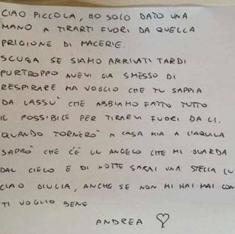 CIAO PICCOLA, HO SOLO DATO UNA
MANO A TIRARTI FUORI DA QUELLA
PRIGIONE DI MACERIE.
SCUSA SE SIAMO ARRIVATI TARDI
PURTROPPO AVEVI GIA SMESSO DI
RESPIRARE MA VOGLIO CHE TU SAPPIA
DA LASSU' CHE ABBIAMO FATTO TUTTO
IL POSSIBILE PER TIRARVI FUORI DA LI.
QUANDO TORNERO' A CASA MIA A L'AQUILA
SAPRO' CHE C'E' UN ANGELO CHE MI GUARDA
DAL CIELO E DI NOTTE SARAI UNA STELLA
CIAO GIULIA, ANCHE SE NON MI HAI MAI
TI VOGLIO BENE
ANDREA